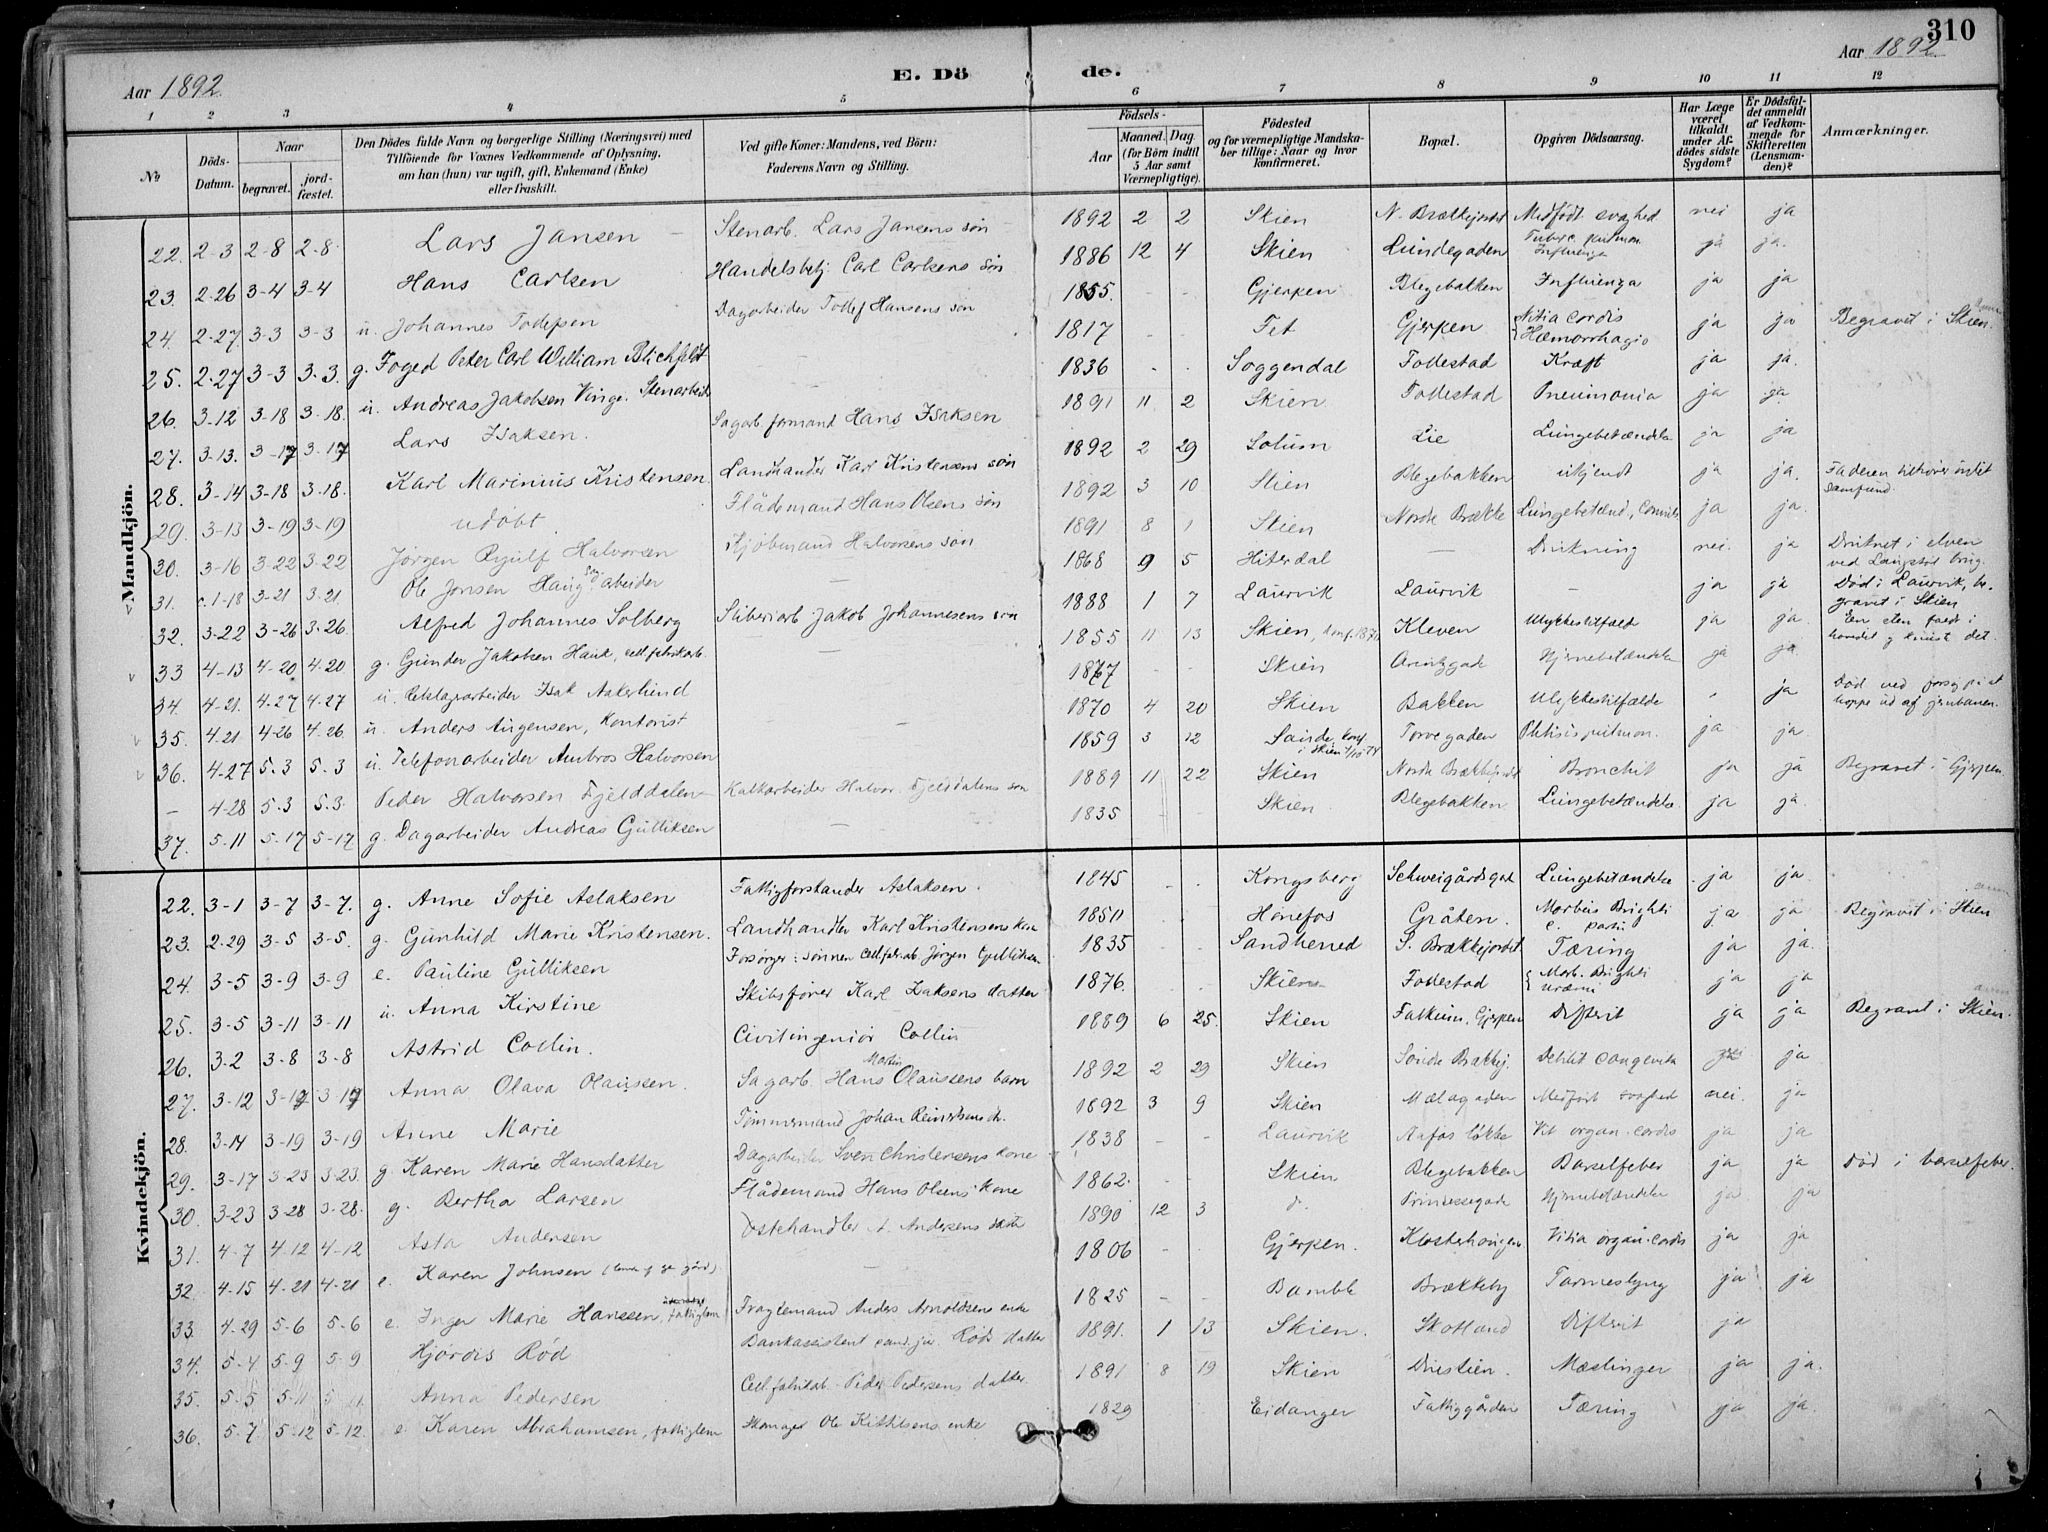 310
Aar 1892.
E. Dö de.
Aar 1892
1 2 3 4 5 6 7 8 9 10 11 12
No
Döds-Datum.
Naar begravet. jordfæstet.
Den Dödes fulde Navn og borgerlige Stilling (Næringsvei) med Tilföiende for Voxnes Vedkommende af Oplysning, om han (hun) var ugift, gift, Enkemand (Enke) eller fraskilt.
Ved gifte Koner: Mandens, ved Börn: Faderens Navn og Stilling.
Födsels- Aar Maaned. Dag. (for Börn indtil 5 Aar samt Værnepligtige).
Födested og for værnepligtige Mandskaber tillige: Naar og hvor konfirmeret.
Bopæl.
Opgiven Dödsaarsag.
Har Læge været tilkaldt under Afdödes sidste Sygdom?
Er Dödsfaldet anmeldt af Vedkommende for Skifteretten (Lensmanden)?
Anmærkninger.
Mandkjön.
22. 2-3 2-8 2-8. Lars Jansen Stenarb. Lars Jansens søn 1892 2 2 Skien N. Brækkejordet Medfödt svaghed nei ja
23. 2-26 3-4 3-4 Hans Carlsen Handelsbetj. Carl Carlsens søn 1886 12 4 Skien Lundegaden Tuberc. pulmon. Influenza ja ja.
24. 2-27 3-3 3-3 u. Johannes Todefsen Dagarbeider Todlef Hansens søn 1855. - - Gjerpen Blegebakken Influenza ja ja
25. 2-27 3-3 3.3. g. Foged Peter Carl William Blichfeldt 1817 - - Fet Gjerpen Vitia cordis Hæmorrhagio ja ja Begravet i Skien.
26. 3-12 3-18 3-18. u. Andreas Jakobsen Vinge. Stenarbeider 1836 - - Soggendal Follestad Kræft ja ja.
27. 3-13. 3-17 3-17 Lars Isaksen. Sagarb. formand Hans Isaksen 1891 11 2 Skien Follestad Pneumonia ja ja
28. 3-14 3-18 3-18. Karl Marinius Kristensen Landhandler Karl Kristensens søn 1892 2 29 Solum Lie Lungebetændelse ja ja
29. 3-13 3-19 3-19 udöbt. Flådemand Hans Olsens søn 1892 3 10 Skien Blegebakken ukjendt ja ja. Faderen tilhörer intet samfund.
30. 3-16 3-22 3-22 Jørgen Halvorsen Kjöbmand Halvorsens søn 1891 8 1 Skien Nordre Brække ja ja.
31. c. 1-18 3-21 3.21. Ole Jonsen Haug, arbeider 1868 9 5 Hiterdal - Drukning nei. ja Druknet i elven ved Langstøl brug.
32. 3-22 3-26 3-26. Alfred Johannes Solberg Jakob Johannesens søn 1888 1 7 Laurvik Laurvik - ja ja Död i Laurvik, begravet i Skien
33 4-13 4-20 4.20 g. Gunder Jakobsen Hauk, cell.fabrikarb. 1855 11 13 Skien, Kleven Ulykkestilfælde ja ja.
34. 4-21. 4.27 4-27 u. Isak Aakerlund 1867 - - Skien Hjernebetændelse ja ja
35. 4.21 4-26 4-26 u. Anders Augensen, kontorist 1870 4 20 Skien Bakken Ulykkestilfælde ja Död ved forsög på at hoppe ud af jernbanen.
36. 4-27 5.3 5.3 u. Telefonarbeider Ambros Halvorsen 1859 3 12 Torvegaden Phtisis pulmon. ja ja.
- 4-28 5.3 5.3. Peder Halvorsen Fjelddalen Kalkarbeider Halvor Fjelddalens søn 1889 11 22 Skien Nordre Brækkejordet Bronchit ja ja Begravet i Gjerpen.
37. 5.11 5.17 5-17 g. Dagarbeider Andreas Gulliksen 1835 - Skien Blegebakken Lungebetændelse. ja ja.
Kvindekjön.
22. 3-1 3-7 3-7. g. Anne Sofie Aslaksen Fattigforstander Aslaksen. 1845 - - Kongsberg Schweigårdsgade Lungebetændelse ja ja.
23. 2-29 3-5 3-5. g. Gunhild Marie Kristensen. Landhandler Karl Kristensens kone 1850 Hönefos Gråten. Morbus Brighti ja ja Begravet i Skien
24. 3-5 3-9 3-9 e. Pauline Gulliksen Forsörger: sönnen Jørgen Gulliksen 1835 - - Sandherred S. Brækkejordet Tæring ja ja.
25. 3-5 3-11 3-11 u. Anna Kirstine Skibsförer Karl Isaksens datter 1876. - - Skien Follestad Morb. Brighti uræmi ja ja
26. 3-2 3-8 3-8 Astrid Collin. Civilingeniör Collin 1889 6 25. Skien Falkum, Gjerpen Difterit ja ja Begravet i Skien.
27. 3-12 3-17 3-17 Anna Olava Olaussen. Sagarb. Hans Martin Olaussens barn 1892 2 29 Skien Söndre Brækkej. Debilit congenita ja
28. 3-14 3-19 3-19 Anne Marie Tömmermand Johan Reinertsens dr. 1892 3 9 Skien Mælagaden Medfödt svaghed nei. ja
29. 3-17 3-23 3-23. g. Karen Marie Hansdatter Dagarbeider Sven Christensens kone 1838 - - Laurvik Aafos løkke Vit. organ. cordis ja ja
30. 3-23 3-28 3-28. g. Bertha Larsen Flådemand Hans Olsens kone 1862. - Skien Blegebakken Barselfeber ja ja Död i barselfeber.
31. 4-7 4-12 4-12 Asta Andersen Ostehandler A. Andersens datter 1890 12 3 d. Prindsessegade Hjernebetændelse ja ja
32. 4-15 4-21 4-21 e. Karen Johnsen 1806 - Gjerpen. Klosterhaugen Vitia organ. cordis ja ja
33. 4-29 5-6 5-6 e. Inger Marie Hanssen, fattiglem Anders Arnoldsens enke 1825 - - Bamble Brækkeby Tarmeslyng ja ja
34. 5-4 5-9 5-9 Hjördis Röd Bankassistent cand. jur. Röds datter 1891. 1 13 Skien. Skotland Difterit ja
35. 5-5 5-11 5-11. Anna Pedersen Cell.fabrikarb. Peder Pedersens datter 1891 8 19 Skien Mæslinger ja ja.
36. 5-7. 5-12 5-12. e. Karen Abrahamsen, fattiglem Ole Kittilsens enke 1829 - Eidanger Fattiggården Tæring ja ja.